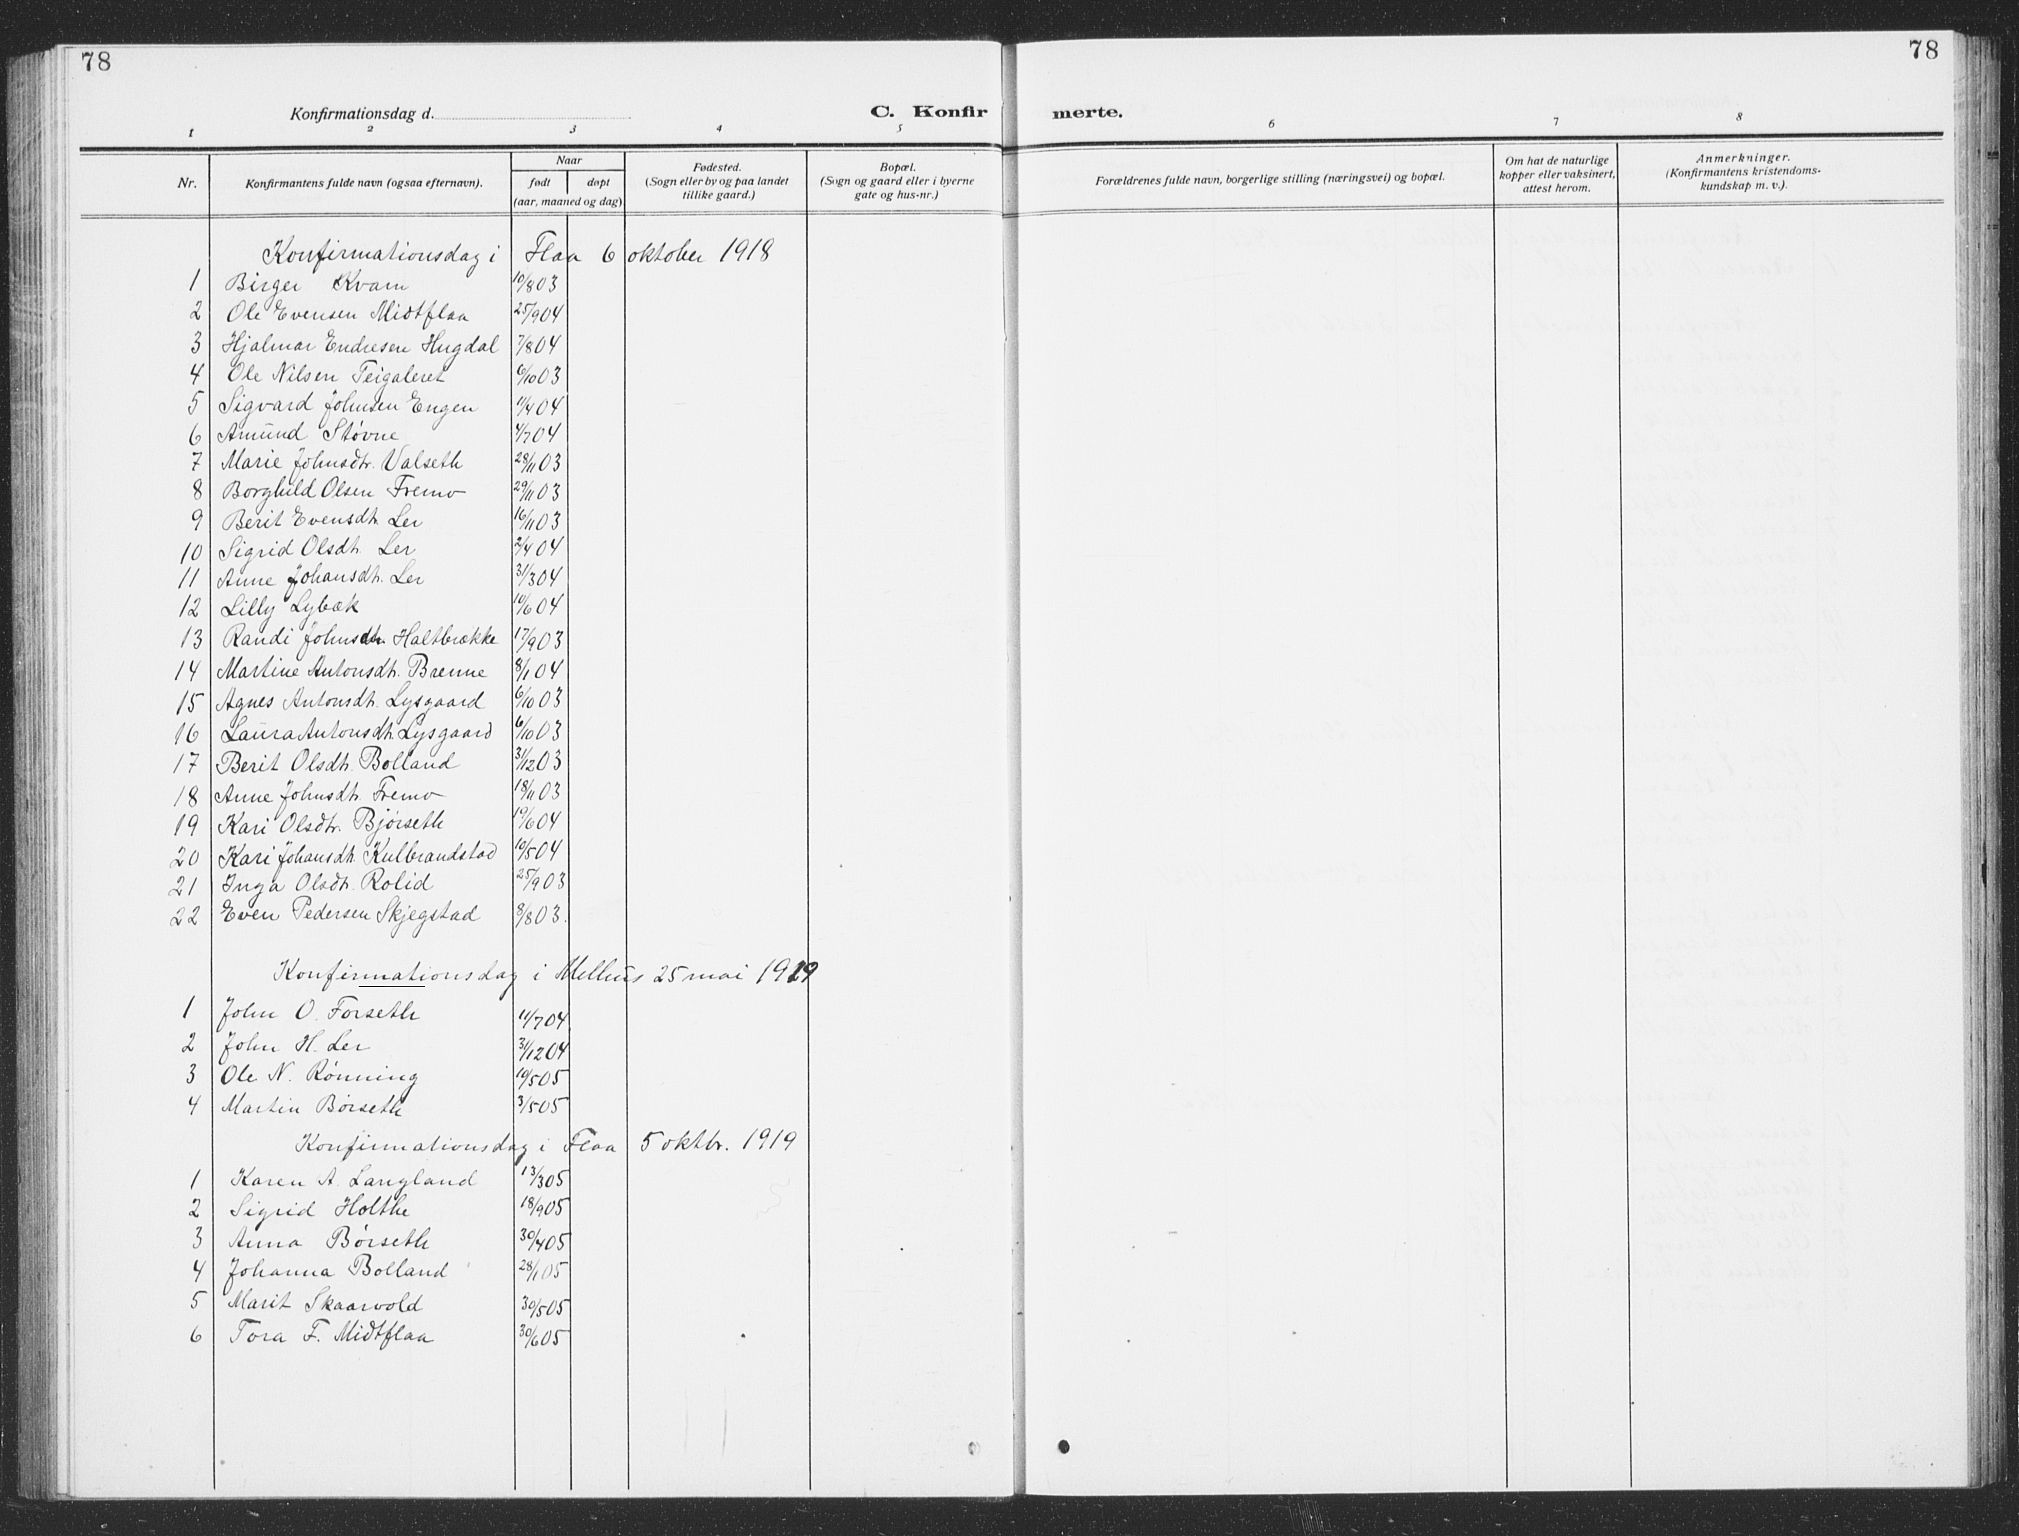 78
78
Konfirmationsdag d.
C. Konfir merte.
1 2 3 4 5 6 7 8
Nr.
Konfirmantens fulde navn (ogsaa efternavn).
Naar
født
døpt
(aar, maaned og dag)
Fødested.
(Sogn eller by og paa landet
tillike gaard.)
Bopæl.
(Sogn og gaard eller i byerne
gate og hus-nr.)
Forældrenes fulde navn, borgerlige stilling (næringsvei) og bopæl.
Om hat de naturlige
kopper eller vaksinert,
attest herom.
Anmerkninger.
(Konfirmantens kristendoms-
kundskap m. v.).
Konfirmationsdag i Flaa 6 oktober 1918
1 Birger Kvam 10/8 03
2 Ole Evensen Midtflaa 25/9 04
3 Hjalmar Endresen Hugdal 7/8 04
4 Ole Nilsen Teigaleret 6/10 03
5 Sigvard Johnsen Engen 11/4 04
6 Amund Støvne 4/7 04
7 Marie Johnsdtr. Valseth 28/11 03
8 Borghild Olsen Fremo 29/11 03
9 Berit Evensdtr. Ler 16/11 03
10 Sigrid Olsdtr. Ler 2/4 04
11 Anne Johansdtr. Ler 31/3 04
12 Lilly Lybæk 10/6 04
13 Randi Johnsdtr. Haltbrække 17/9 03
14 Martine Antonsdtr. Brenne 8/1 04
15 Agnes Antonsdtr. Lysgaard 6/10 03
16 Laura Antonsdtr. Lysgaard 6/10 03
17 Berit Olsdtr. Bolland 31/12 03
18 Anne Johnsdtr. Fremo 18/11 03
19 Kari Olsdtr. Bjørseth 19/6 04
20 Kari Johansdtr. Kulbrandstad 10/5 04
21 Inga Olsdtr. Rolid 25/9 03
22 Even Pedersen Skjegstad 8/8 03.
Konfirmationsdag i Melhus 25 mai 1919
1 John O. Forseth 11/7 04
2 John H. Ler 31/12 04
3 Ole N. Rønning 10/5 05
4 Martin Børseth 3/5 05
Konfirmationsdag i Flaa 5 oktbr. 1919
1 Karen A. Langland 13/3 05
2 Sigrid Holthe 18/9 05
3 Anna Børseth 30/4 05
4 Johanna Bolland 28/1 05
5 Marit Skaarvold 30/5 05
6 Tora F. Midtflaa 30/6 05